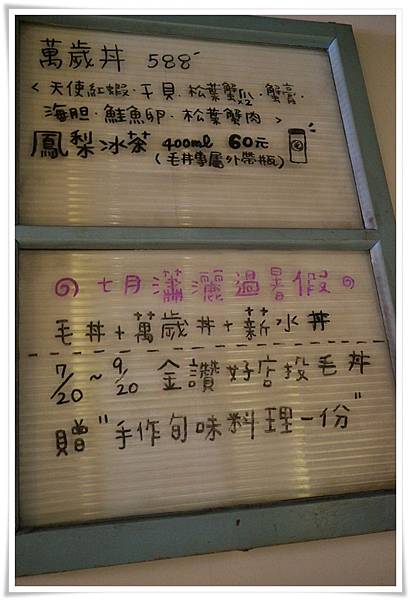 萬歲丼 588
<天使紅蝦·干貝·松葉蟹x2·蟹膏·
海胆·鮭魚卵·松葉蟹肉>
鳳梨冰茶 400ml 60元
(毛丼專屬外帶瓶)
七月瀟灑過暑假
毛丼+萬歲丼+薪水丼
7/20~9/20 金讚好店投毛丼
贈"手作旬味料理一份"